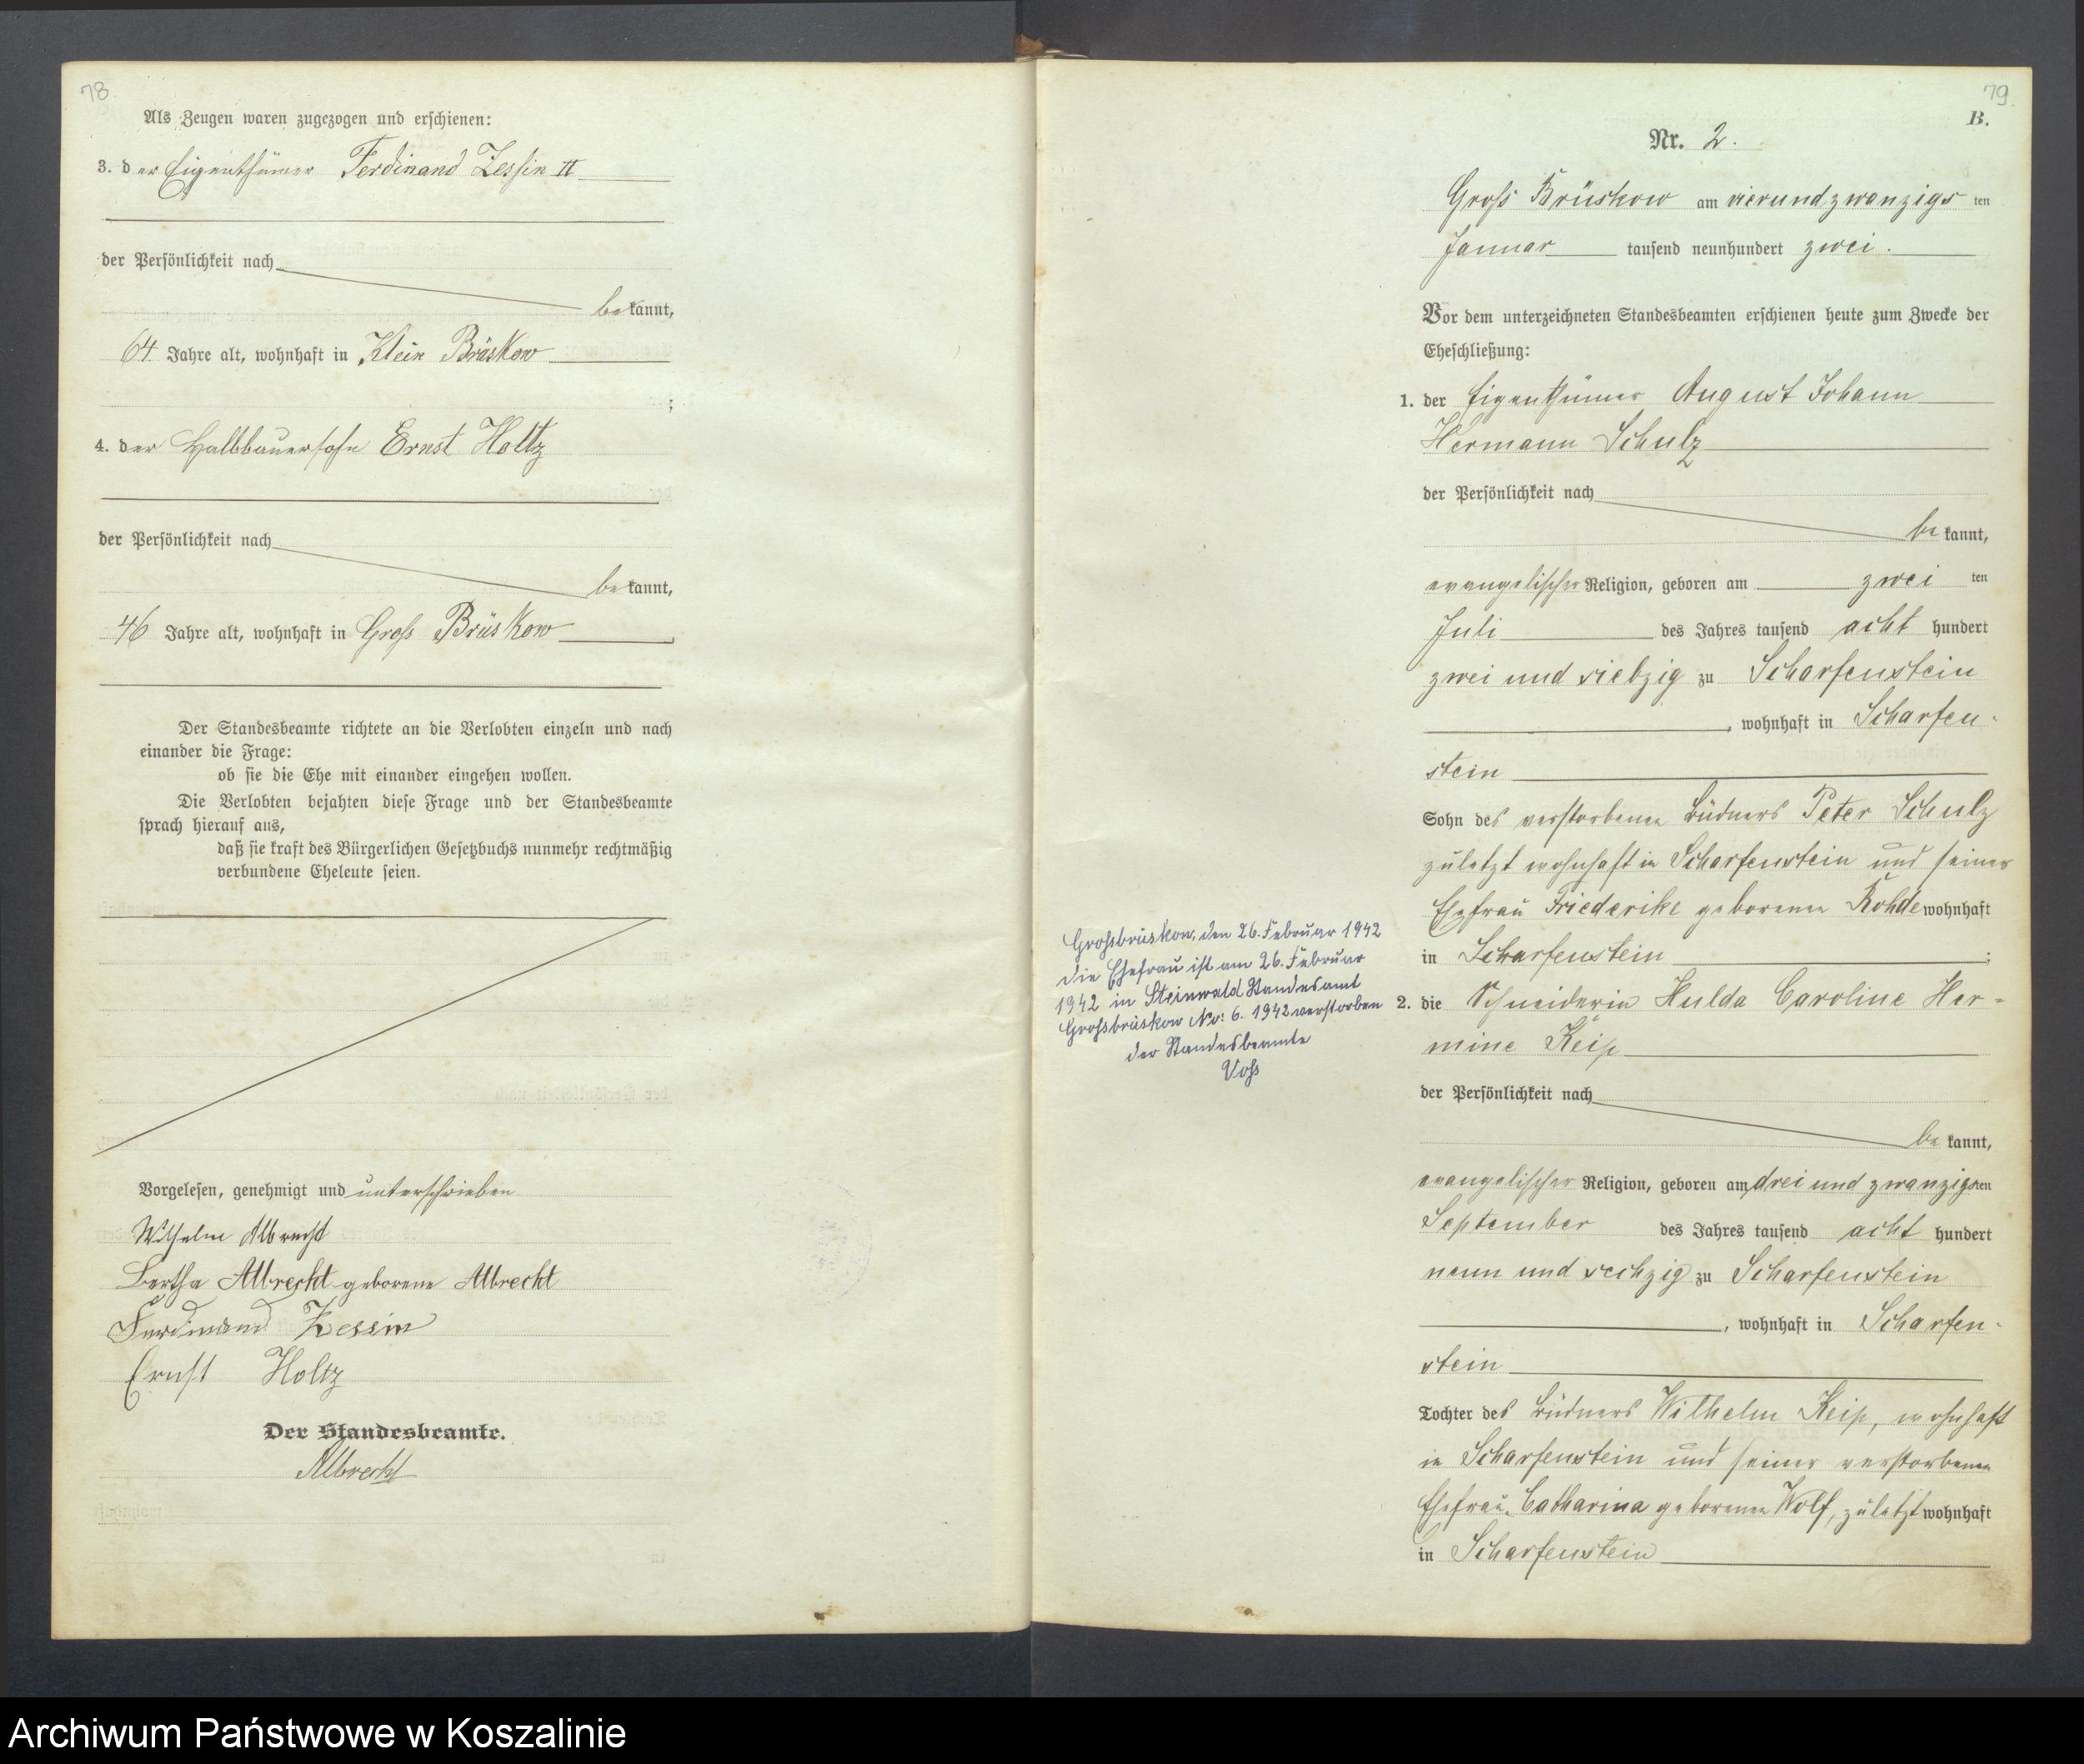 78
Als Zeugen waren zugezogen und erschienen:
3. der Eigenthümer Ferdinand Zessin II
der Persönlichkeit nach
bekannt,
64 Jahre alt, wohnhaft in Klein Brüskow
;
4. der Halbbauersohn Ernst Holtz
der Persönlichkeit nach
bekannt,
46 Jahre alt, wohnhaft in Groß Brüskow
Der Standesbeamte richtete an die Verlobten einzeln und nach
einander die Frage:
ob sie die Ehe mit einander eingehen wollen.
Die Verlobten bejahten diese Frage und der Standesbeamte
sprach hierauf aus,
daß sie kraft des Bürgerlichen Gesetzbuchs nunmehr rechtmäßig
verbundene Eheleute seien.
Vorgelesen, genehmigt und unterschrieben
Wilhelm Albrecht
Bertha Albrecht geborene Albrecht
Ferdinand Zessin
Ernst Holtz
Der Standesbeamte.
Albrecht
79.
B.
Nr. 2.
Groß Brüskow am vierundzwanzigsten
Januar tausend neunhundert zwei.
Vor dem unterzeichneten Standesbeamten erschienen heute zum Zwecke der
Eheschließung:
1. der Eigenthümer August Johann
Hermann Schulz
der Persönlichkeit nach
bekannt,
evangelischer Religion, geboren am zweiten
Juli des Jahres tausend acht hundert
zwei und siebzig zu Scharfenstein
, wohnhaft in Scharfen-
stein
Sohn des verstorbenen Büdners Peter Schulz
zuletzt wohnhaft in Scharfenstein und seiner
Ehefrau Friederike geborenen Rohde wohnhaft
in Scharfenstein ;
Großbrüskow, den 26. Februar 1942
die Ehefrau ist am 26. Februar
1942 in Steinwald Standesamt
Großbrüskow No: 6. 1942 verstorben
der Standesbeamte
Voß
2. die Schneiderin Hulda Caroline Her-
mine Keip
der Persönlichkeit nach
bekannt,
evangelischer Religion, geboren am drei und zwanzigsten
September des Jahres tausend acht hundert
neun und sechzig zu Scharfenstein
, wohnhaft in Scharfen-
stein
Tochter des Büdners Wilhelm Keip, wohnhaft
in Scharfenstein und seiner verstorbenen
Ehefrau Catharina geborenen Wolf, zuletzt wohnhaft
in Scharfenstein
Archiwum Państwowe w Koszalinie